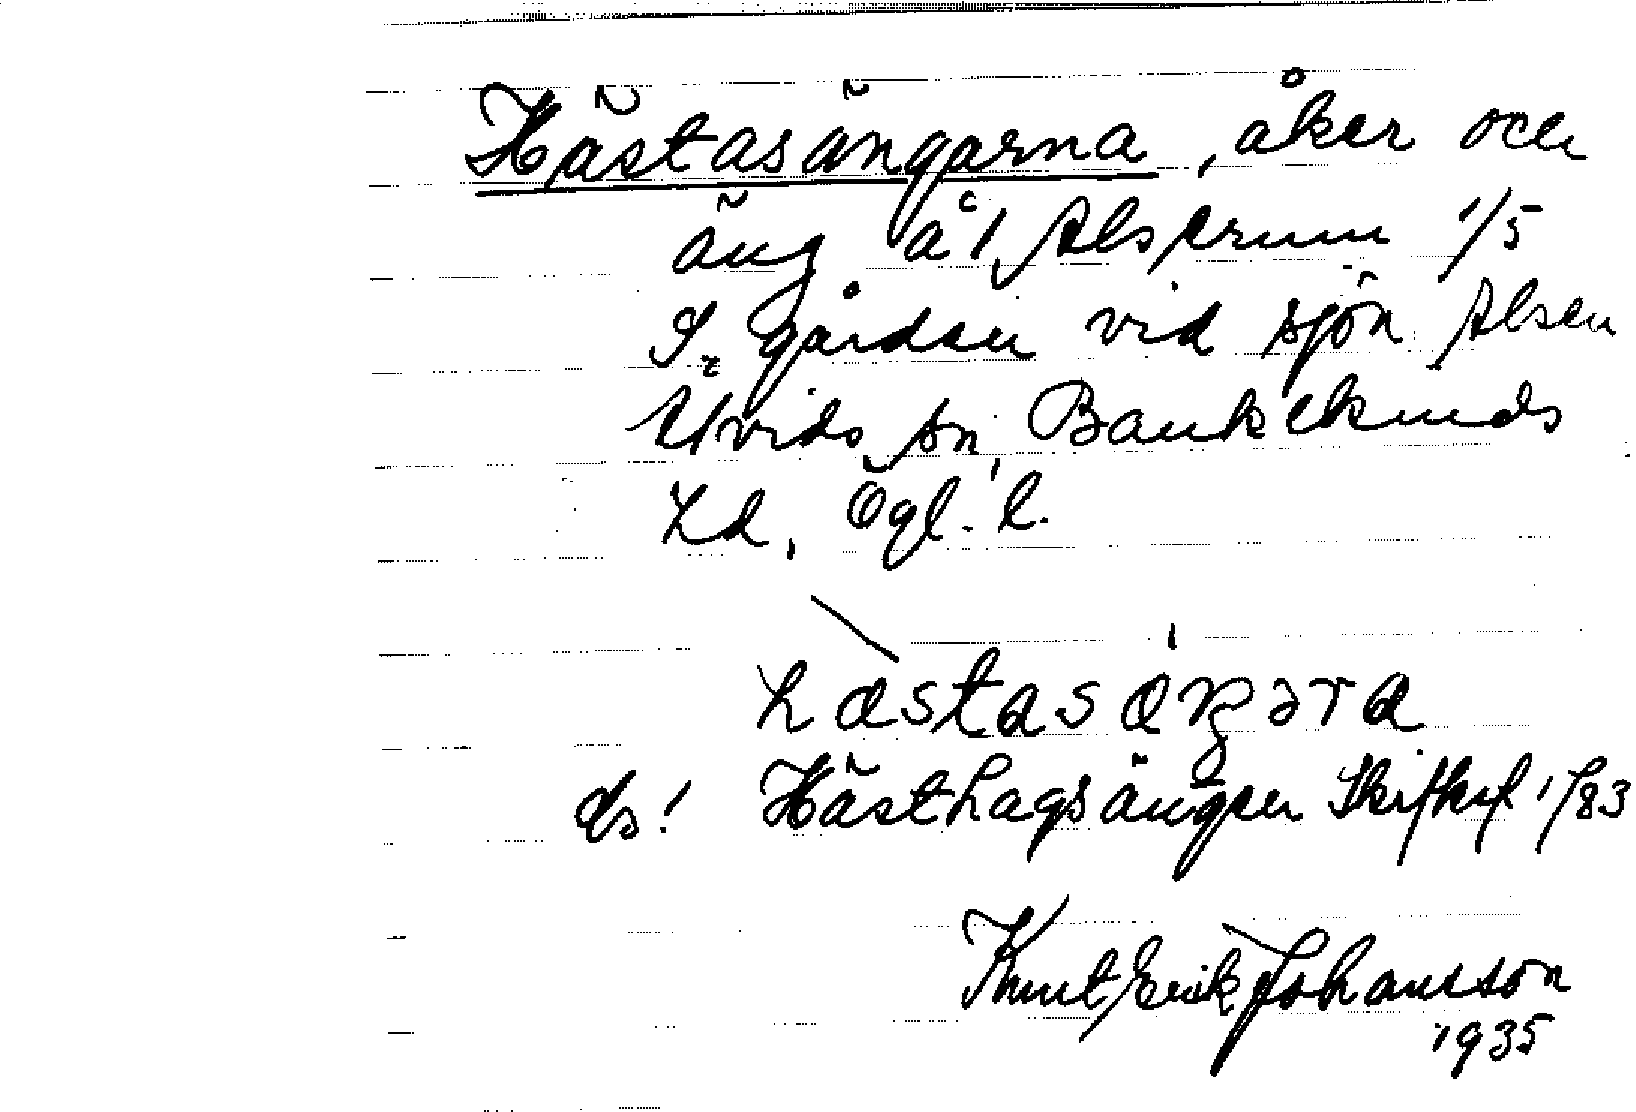 Hästasängarna, åker och
äng å 1 Alserum 1/5
S. gården vid sjön Alsen
Åtvids sn, Bankekinds
hd, Ögl. l.
hæstasæŋəra
ds! Hästhagsängen Skifteskf 1783
Knut Erik Johansson
1935